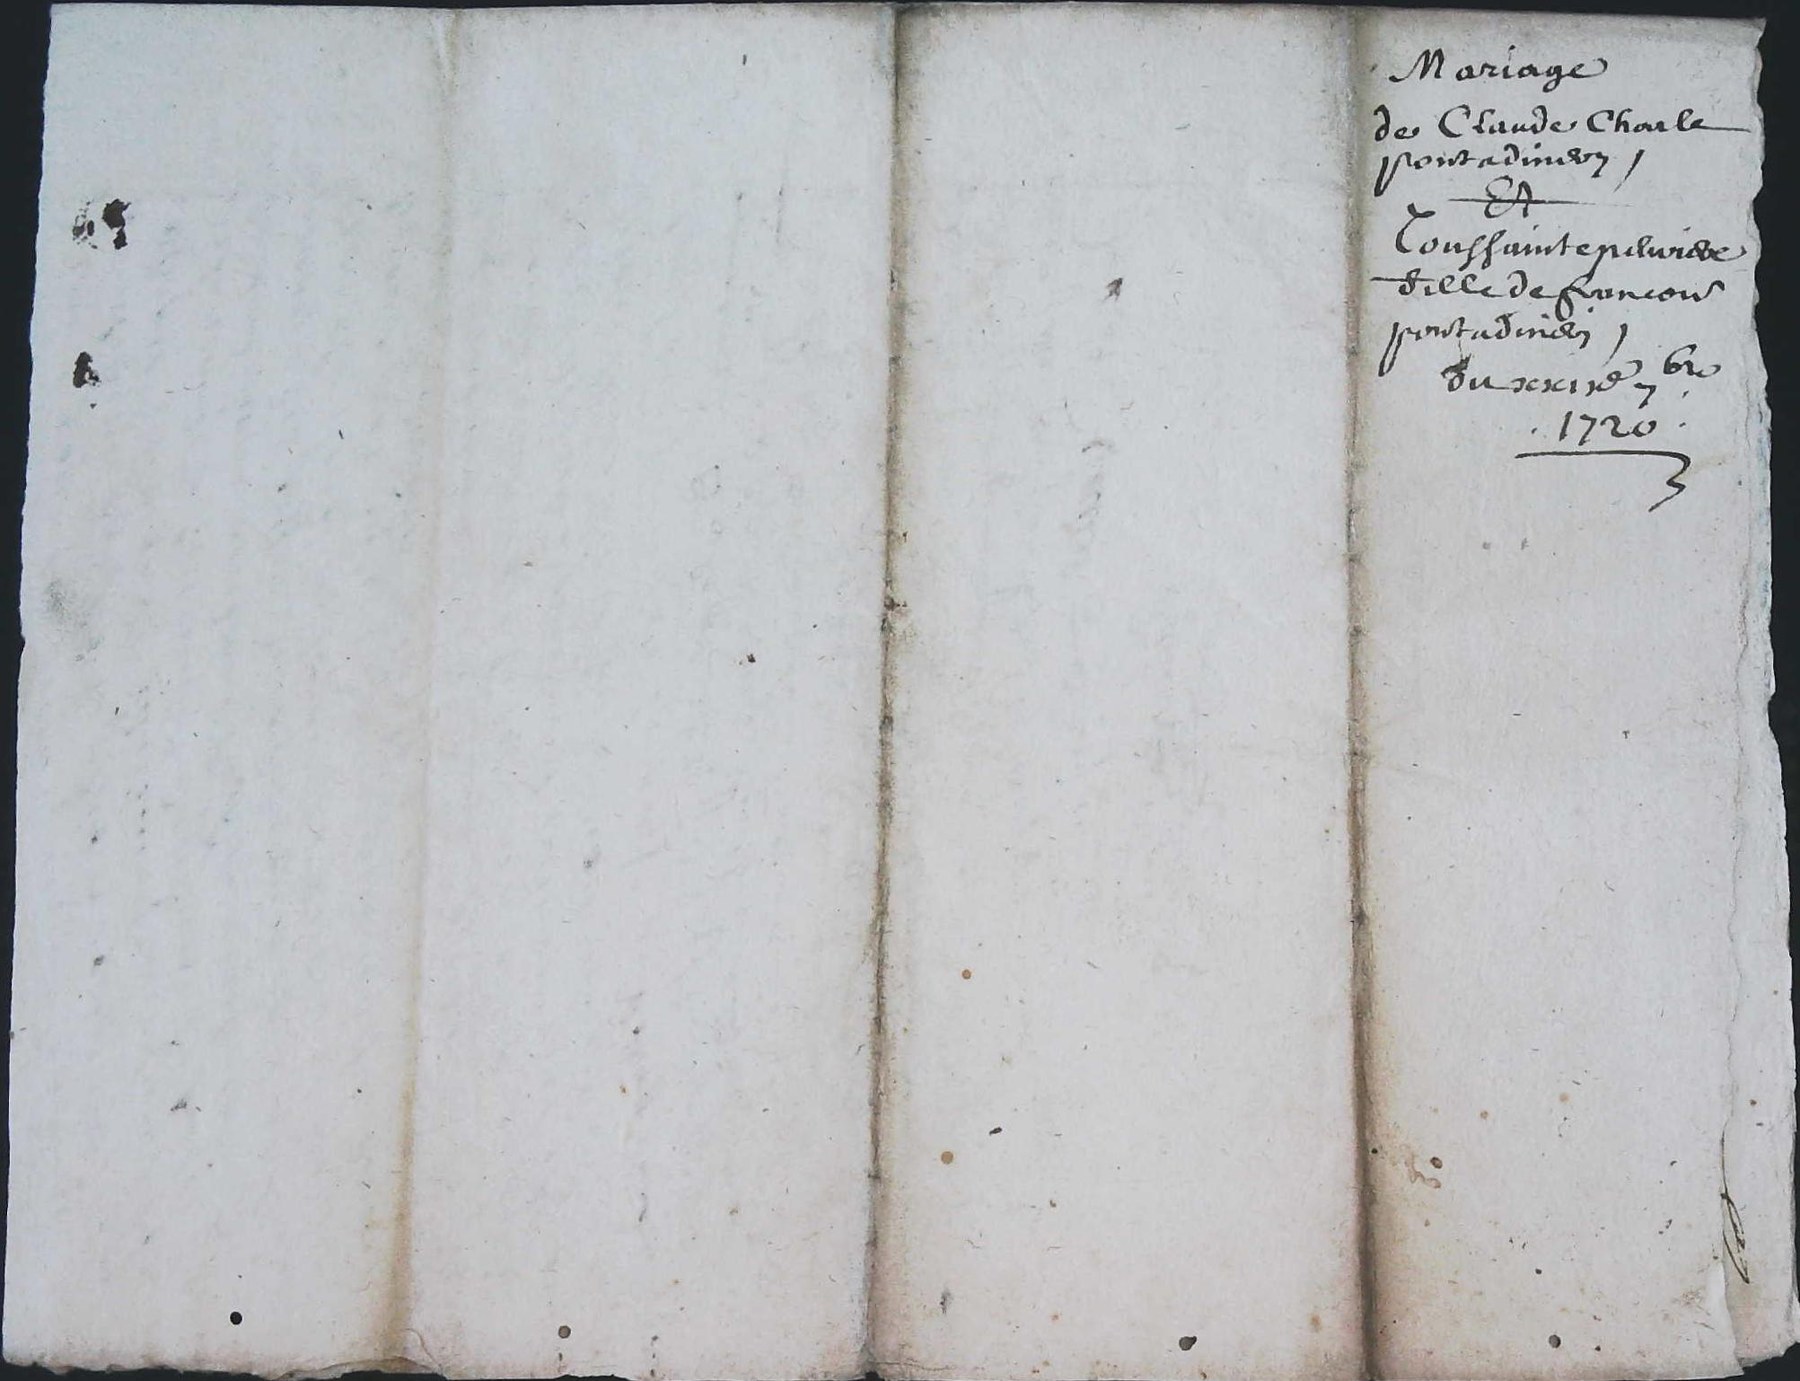 Mariage
de Claude Charle
pontadinery
Et
Toussainte
fille de francois
pontadinery
du 7bre
1720